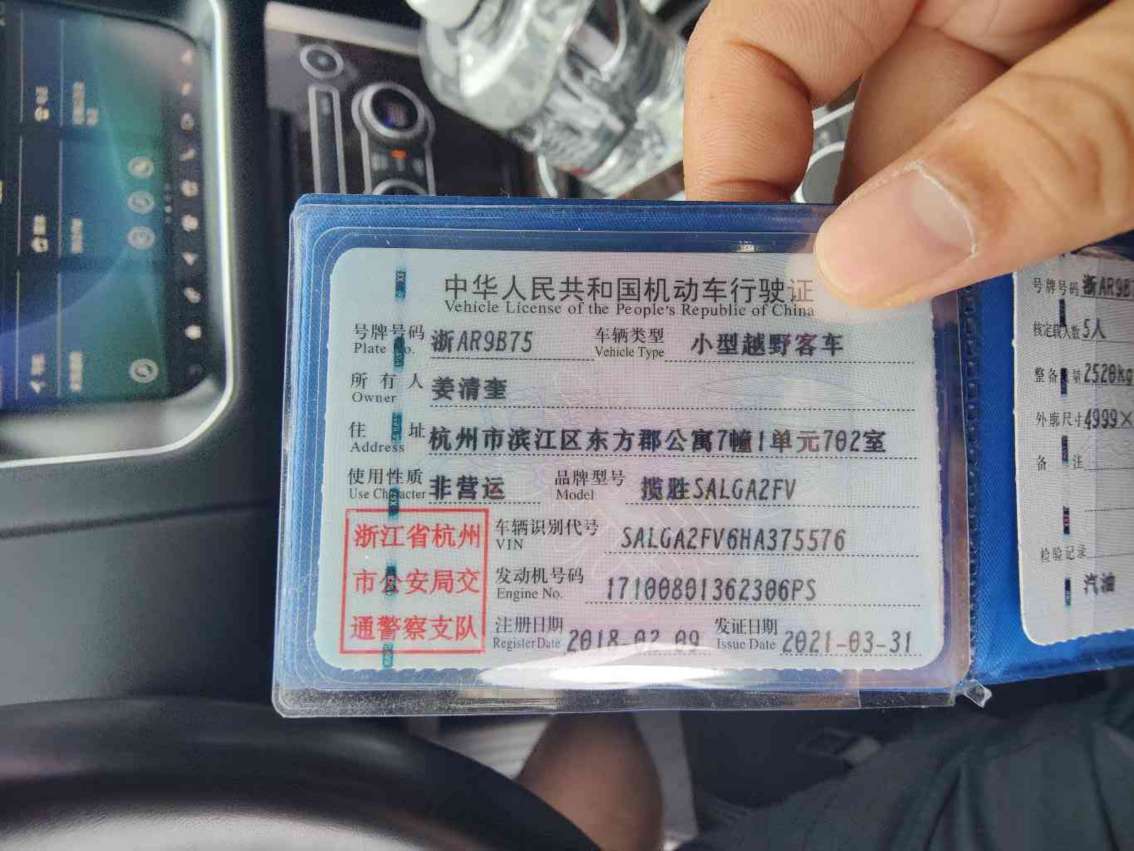 中华人民共和国机动车行驶证
Vehicle License of the People's Republic of China
号牌号码 浙AR9B75 车辆类型 小型越野客车
Plate No. Vehicle Type
所有人 姜清奎
Owner
住址 杭州市滨江区东方郡公寓7幢1单元702室
Address
使用性质 非营运 品牌型号 揽胜SALGA2FV
Use Character Model
浙江省杭州
市公安局交
通警察支队
车辆识别代号 SALGA2FV6HA375576
VIN
发动机号码 17100801362306PS
Engine No.
注册日期 2018-02-09 发证日期 2021-03-31
Register Date Issue Date
号牌号码 浙AR9B
核定载人数 5人
整备 量 2520kg
外廓尺寸 4999×
备 注
检验记录
汽油